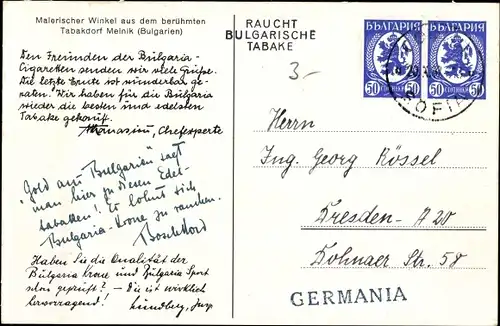 Malerischer Winkel aus dem berühmten
Tabakdorf Melnik (Bulgarien)
RAUCHT
BULGARISCHE
TABAKE
БЪЛГАРИЯ
БЪЛГАРИЯ
50 СТОТИНКИ 50
50 СТОТИНКИ 50
3-
Den Freunden der Bulgaria-
Cigaretten senden wir viele Grüße.
Die letzte Ernte ist wunderbar ge-
raten. Wir haben für die Bulgaria
wieder die besten und edelsten
Tabake gekauft.
Athanasiu, Chefexperte
"Gold aus Bulgarien" sagt
man hier zu diesen Edel-
tabaken! Es lohnt sich
Bulgaria-Krone zu rauchen.
Haben Sie die Qualität der
Bulgaria Krone und Bulgaria Sport
schon geprüft? - Die ist wirklich
hervorragend!
Lundberg, Insp.
Herrn
Ing. Georg Kössel
Dresden - A 20
Dohnaer Str. 58
GERMANIA